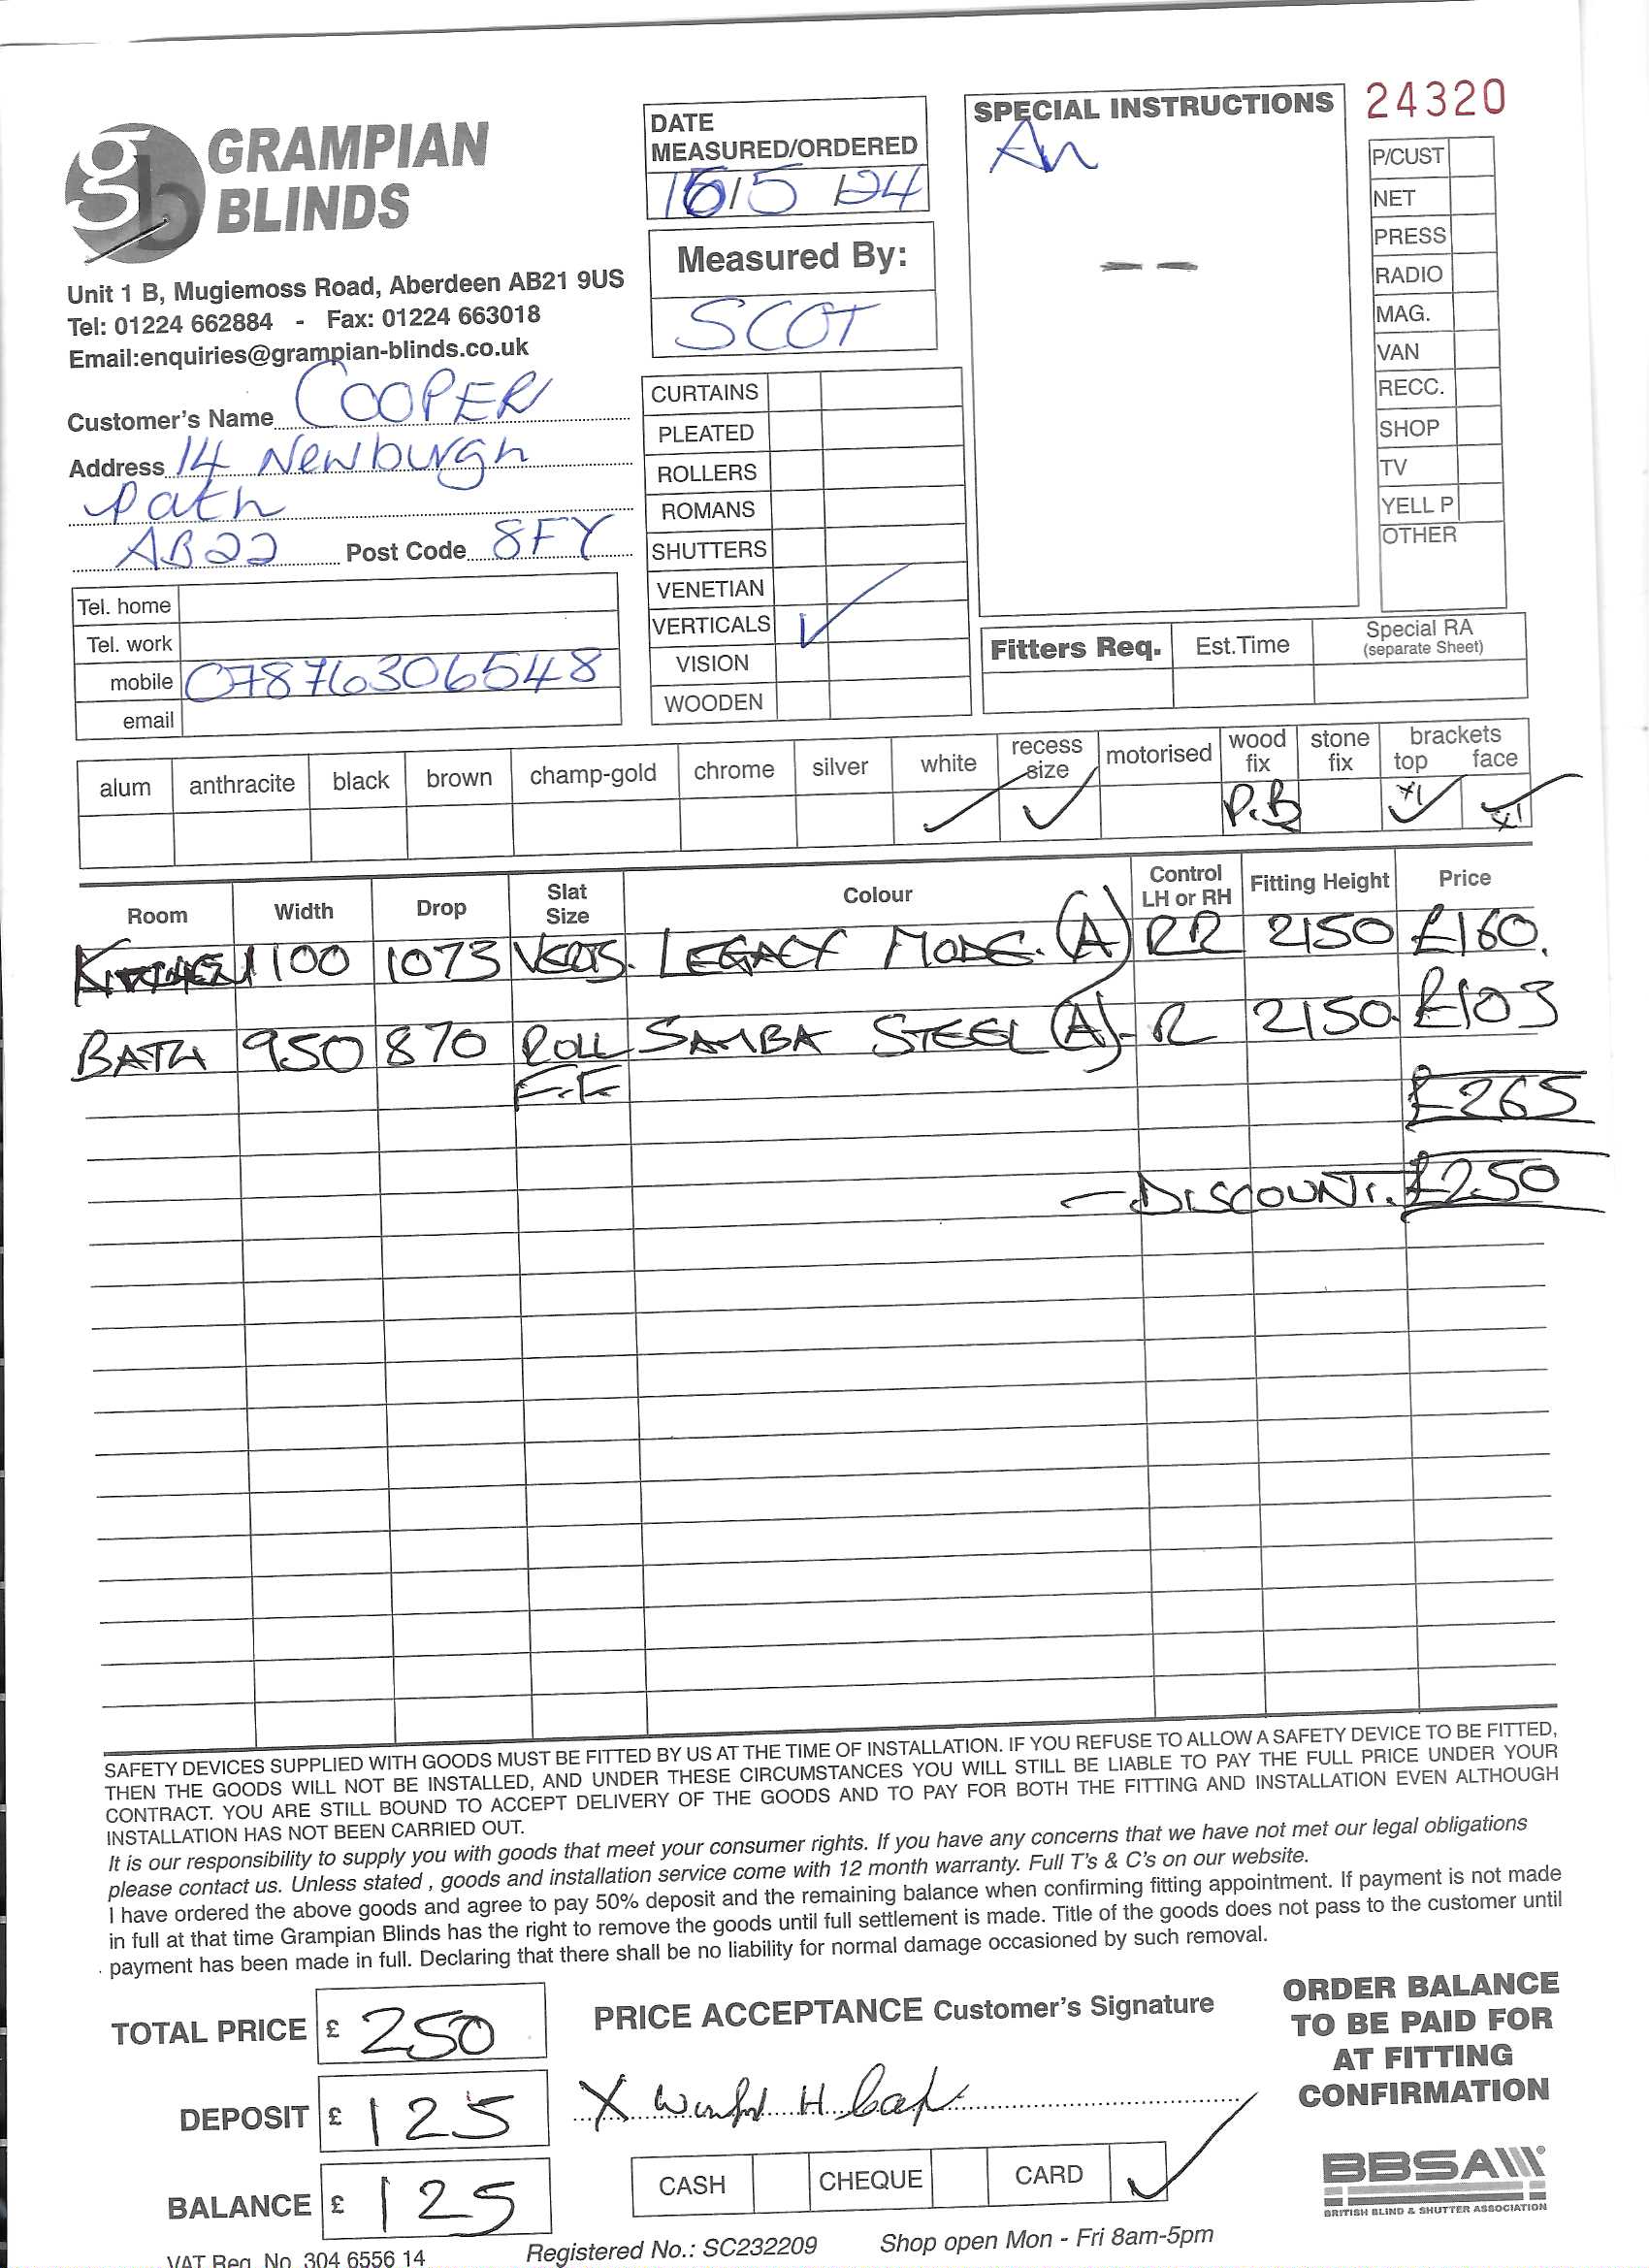 24320
GRAMPIAN
BLINDS
Unit 1 B, Mugiemoss Road, Aberdeen AB21 9US
Tel: 01224 662884 - Fax: 01224 663018
Email:enquiries@grampian-blinds.co.uk
Customer's Name COOPER
Address 14 Newburgh
Path
AB22 Post Code 8FY
Tel. home
Tel. work
mobile 07876306548
email
DATE
MEASURED/ORDERED
/5/24
Measured By:
SCOT
CURTAINS
PLEATED
ROLLERS
ROMANS
SHUTTERS
VENETIAN
VERTICALS ✓
VISION
WOODEN
SPECIAL INSTRUCTIONS
Am
--
P/CUST
NET
PRESS
RADIO
MAG.
VAN
RECC.
SHOP
TV
YELL P
OTHER
Fitters Req. Est.Time Special RA
(separate Sheet)
alum anthracite black brown champ-gold chrome silver white recess size motorised wood fix stone fix brackets top face
✓ ✓ P.B x1 ✓ ✓ x1
Room Width Drop Slat Size Colour Control LH or RH Fitting Height Price
KITCHEN 1100 1073 VERTS. LEGACY (A) RR 2150 £160.
BATH 950 870 ROLL SAMBA STEEL (A)- R 2150 £105
F.F
£265
- DISCOUNT. £250
SAFETY DEVICES SUPPLIED WITH GOODS MUST BE FITTED BY US AT THE TIME OF INSTALLATION. IF YOU REFUSE TO ALLOW A SAFETY DEVICE TO BE FITTED,
THEN THE GOODS WILL NOT BE INSTALLED, AND UNDER THESE CIRCUMSTANCES YOU WILL STILL BE LIABLE TO PAY THE FULL PRICE UNDER YOUR
CONTRACT. YOU ARE STILL BOUND TO ACCEPT DELIVERY OF THE GOODS AND TO PAY FOR BOTH THE FITTING AND INSTALLATION EVEN ALTHOUGH
INSTALLATION HAS NOT BEEN CARRIED OUT.
It is our responsibility to supply you with goods that meet your consumer rights. If you have any concerns that we have not met our legal obligations
please contact us. Unless stated , goods and installation service come with 12 month warranty. Full T's & C's on our website.
I have ordered the above goods and agree to pay 50% deposit and the remaining balance when confirming fitting appointment. If payment is not made
in full at that time Grampian Blinds has the right to remove the goods until full settlement is made. Title of the goods does not pass to the customer until
payment has been made in full. Declaring that there shall be no liability for normal damage occasioned by such removal.
TOTAL PRICE £ 250
DEPOSIT £ 125
BALANCE £ 125
PRICE ACCEPTANCE Customer's Signature
X
CASH CHEQUE CARD ✓
ORDER BALANCE
TO BE PAID FOR
AT FITTING
CONFIRMATION
BBSA
BRITISH BLIND & SHUTTER ASSOCIATION
VAT Reg. No. 304 6556 14 Registered No.: SC232209 Shop open Mon - Fri 8am-5pm